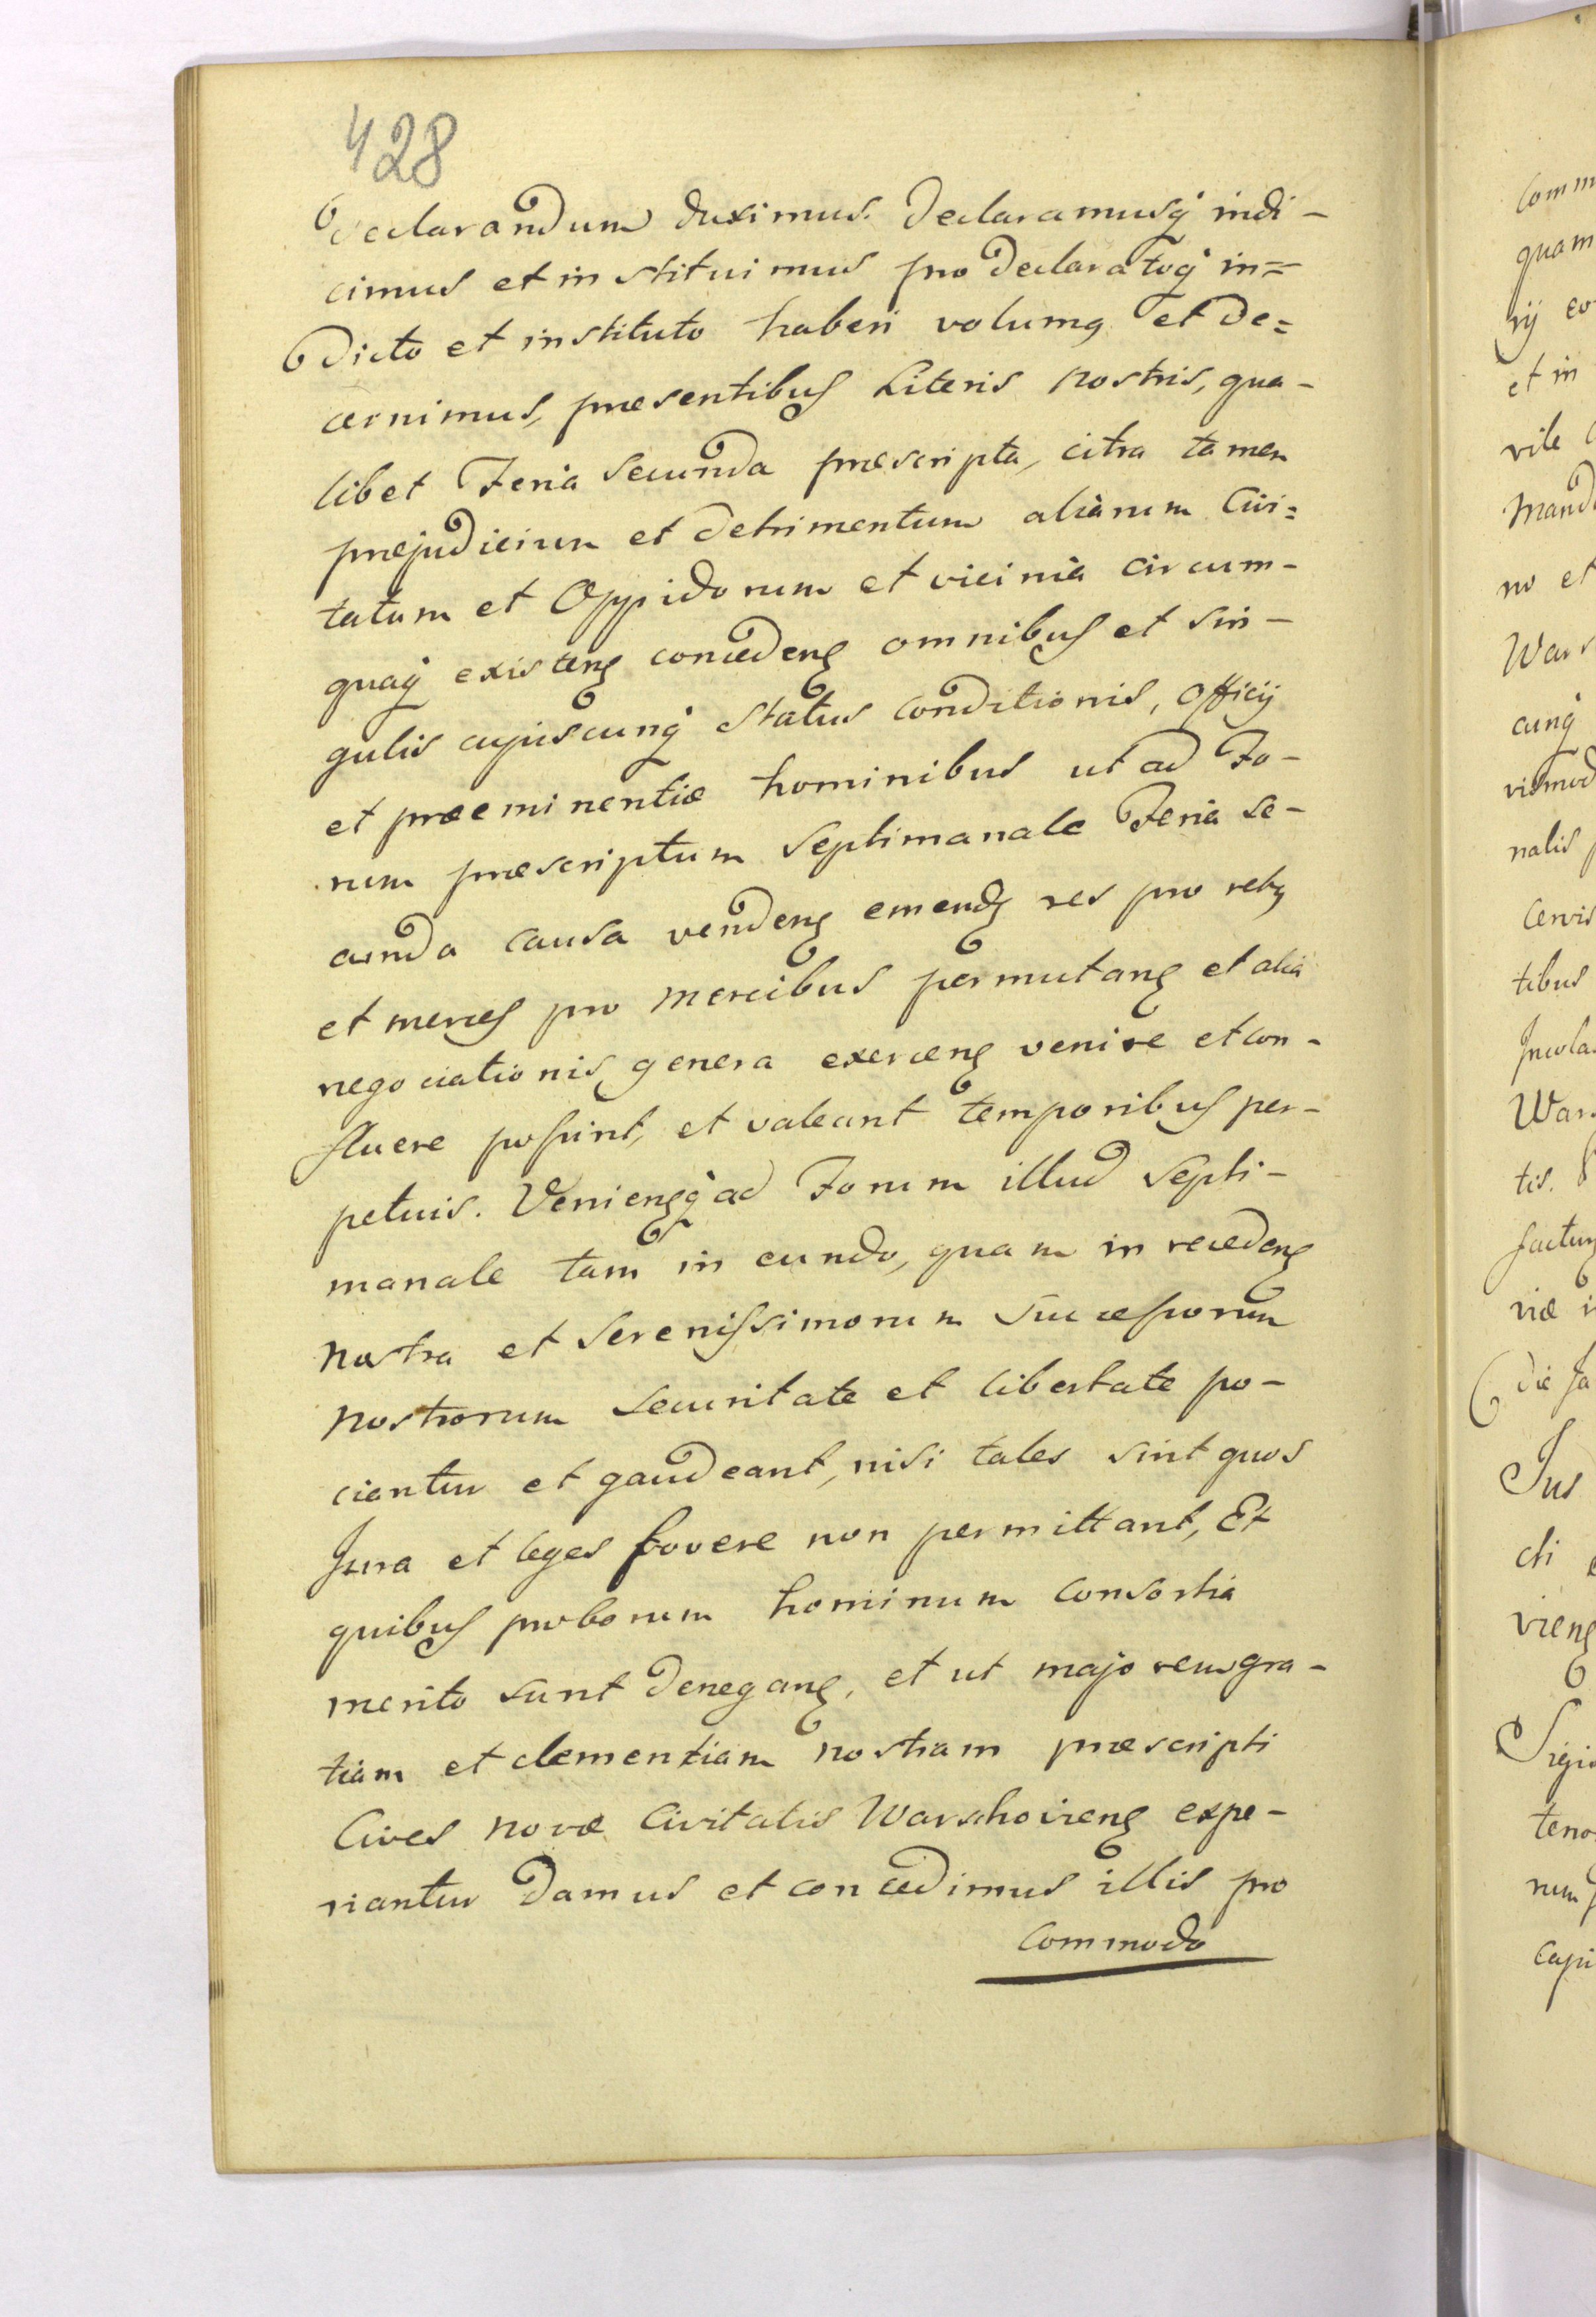 428
declarandum duximus. Declaramusq́ indi-
cimus et instituimus pro declaratoq́ in=
dicto et instituto haberi volumꝰ et de=
cernimus, præsentibus Literis nostris, qua-
libet Feria secunda præscripta, citra tamen
præjudicium et detrimentum aliarum Civi=
tatum et Oppidorum et vicinia circum-
quaq́ existenꝭ concedenꝭ omnibus et sin-
gulis cujuscunq́ status conditionis, officij
et præeminentiæ hominibus ut ad Fo-
rum præscriptum Septimanale Feria se-
cunda causa vendenꝭ emendꝭ res pro rebꝰ
et merces pro mercibus permutanꝭ et alia
negociationis genera exercenꝭ venire et con-
fluere possint, et valeant temporibus per-
petuis. Venienꝭq́ ad Forum illud Septi-
manale tam in eundo, quam in recedenꝭ
nostra et Serenissimorum Successorum
nostrorum securitate et libertate po-
ciantur et gaudeant, nisi tales sint quos
Jura et leges fovere non permittant, Et
quibus proborum hominum consortia
merito sunt deneganꝭ, et ut majorem gra-
tiam et clementiam nostram præscripti
Cives novæ Civitatis Warschovienꝭ expe-
riantur Damus et concedimus illis pro
commodo
comm
quam
rij eo
et in
vile
mand
no et
Wars
cunq́
vismod
nalis
cervis
tibus
Incola
Wars
tis.
factum
viæ i
die Ja
Jus
cti
vienꝭ
Sigis
teno
rum
capi